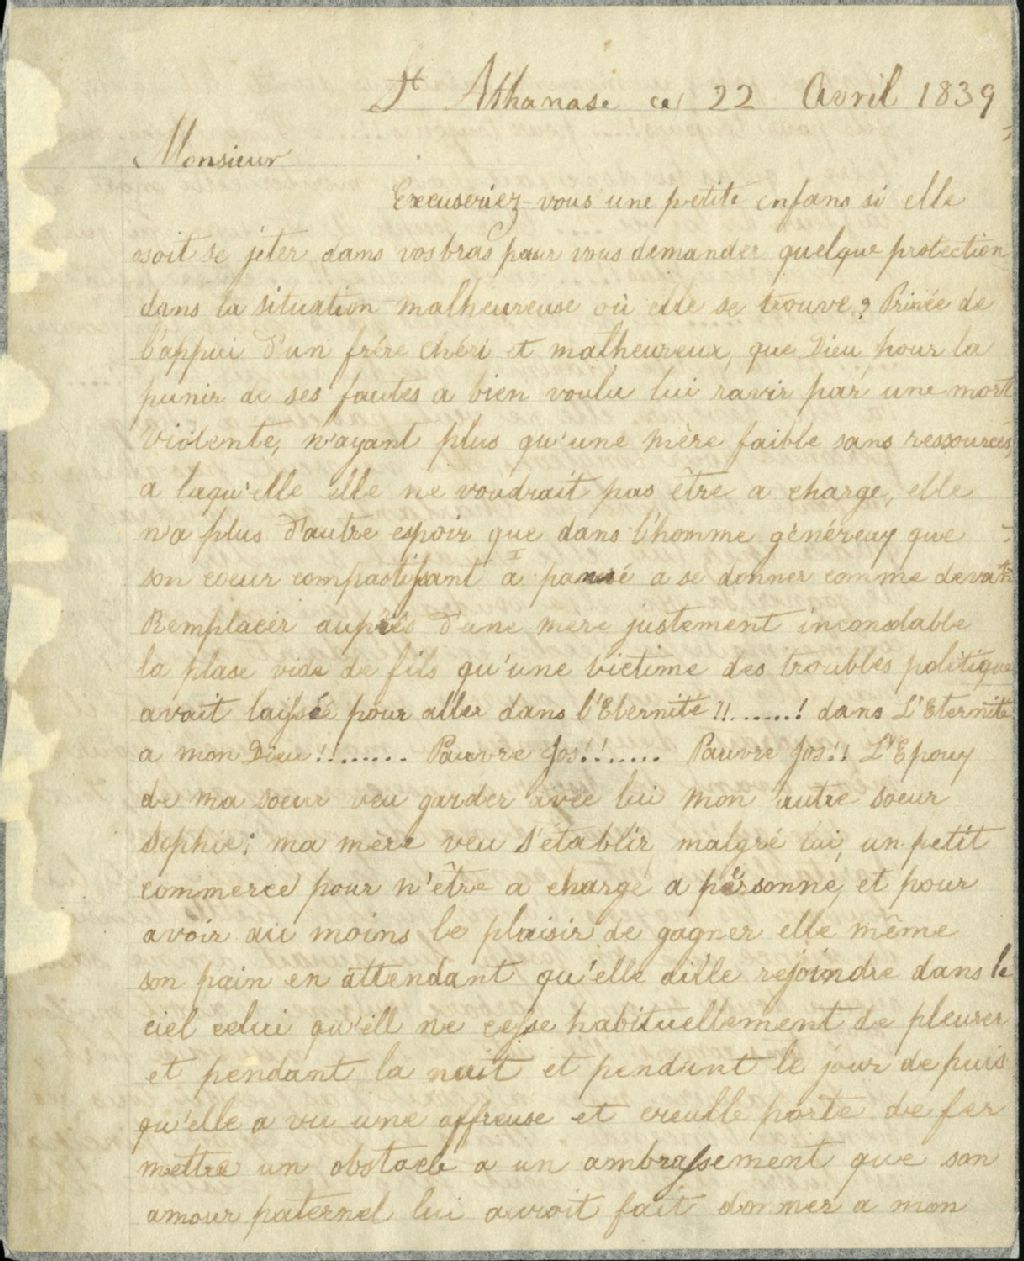 St Athanase ce 22 Avril 1839
Monsieur
Excuseriez-vous une petite enfans si elle
osoit se jeter dans vos bras pour vous demander quelque protection
dans la situation malheureuse où elle se trouve? Privée de
l'appui d'un frére chéri et malheureux, que Dieu pour la
punir de ses fautes a bien voulu lui ravir par une mort
violente, n'ayant plus qu'une mère faible sans ressources,
a laqu'elle elle ne voudrait pas être a charge, elle
n'a plus d'autre espoir que dans l'homme généreux que
son coeur compastissant a a se donner comme devant
Remplacer auprès d'une mère justement inconsolable
la plase vide de fils qu'une victime des troubles politique
avait laissée pour aller dans l'Eternité !!......! dans L'Eternité
a mon Dieu !!....... Pauvre Jos!!....... Pauvre Jos!! L'Epoux
de ma soeur veu garder avec lui mon autre soeur
Sophie; ma mère veu s'établir, malgré lui, un petit
commerce pour n'être a charge a personne, et pour
avoir au moins le plaisir de gagner elle même
son pain en attendant qu'elle aille rejoindre dans le
ciel celui qu'ell ne cesse habituellement de pleurer
et pendant la nuit et pendant le jour depuis
qu'elle a vu une affreuse et creulle porte de fer
mettre un obstacle a un ambrassement que son
amour paternel lui auroit fait donner a mon